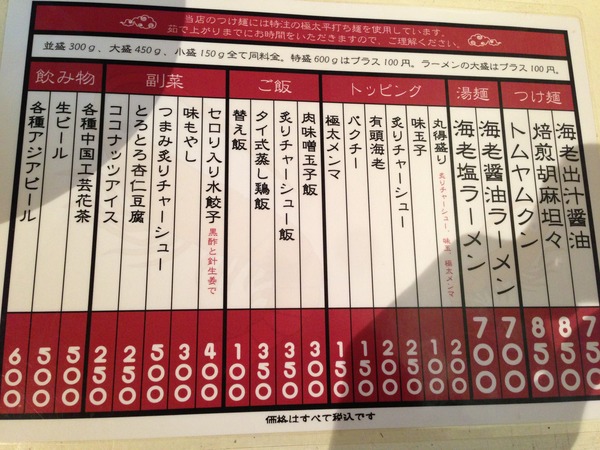 当店のつけ麺には特注の極太平打ち麺を使用しています。
茹で上がりまでにお時間をいただきますので、ご理解ください。
並盛300g、大盛450g、小盛150g全て同料金。特盛600gはプラス100円。ラーメンの大盛はプラス100円。
つけ麺
海老出汁醤油 750
焙煎胡麻坦々 850
トムヤムクン 850
湯麺
海老醤油ラーメン 700
海老塩ラーメン 700
トッピング
丸得盛り 炙りチャーシュー、味玉、極太メンマ 200
味玉子 100
炙りチャーシュー 200
有頭海老 200
パクチー 100
極太メンマ 150
ご飯
肉味噌玉子飯 300
炙りチャーシュー飯 350
タイ式蒸し鶏飯 350
替え飯 100
副菜
セロリ入り水餃子 黒酢と針生姜で 400
味もやし 300
つまみ炙りチャーシュー 500
とろとろ杏仁豆腐 250
ココナッツアイス 250
飲み物
各種中国工芸花茶 500
生ビール 500
各種アジアビール 600
価格はすべて税込です